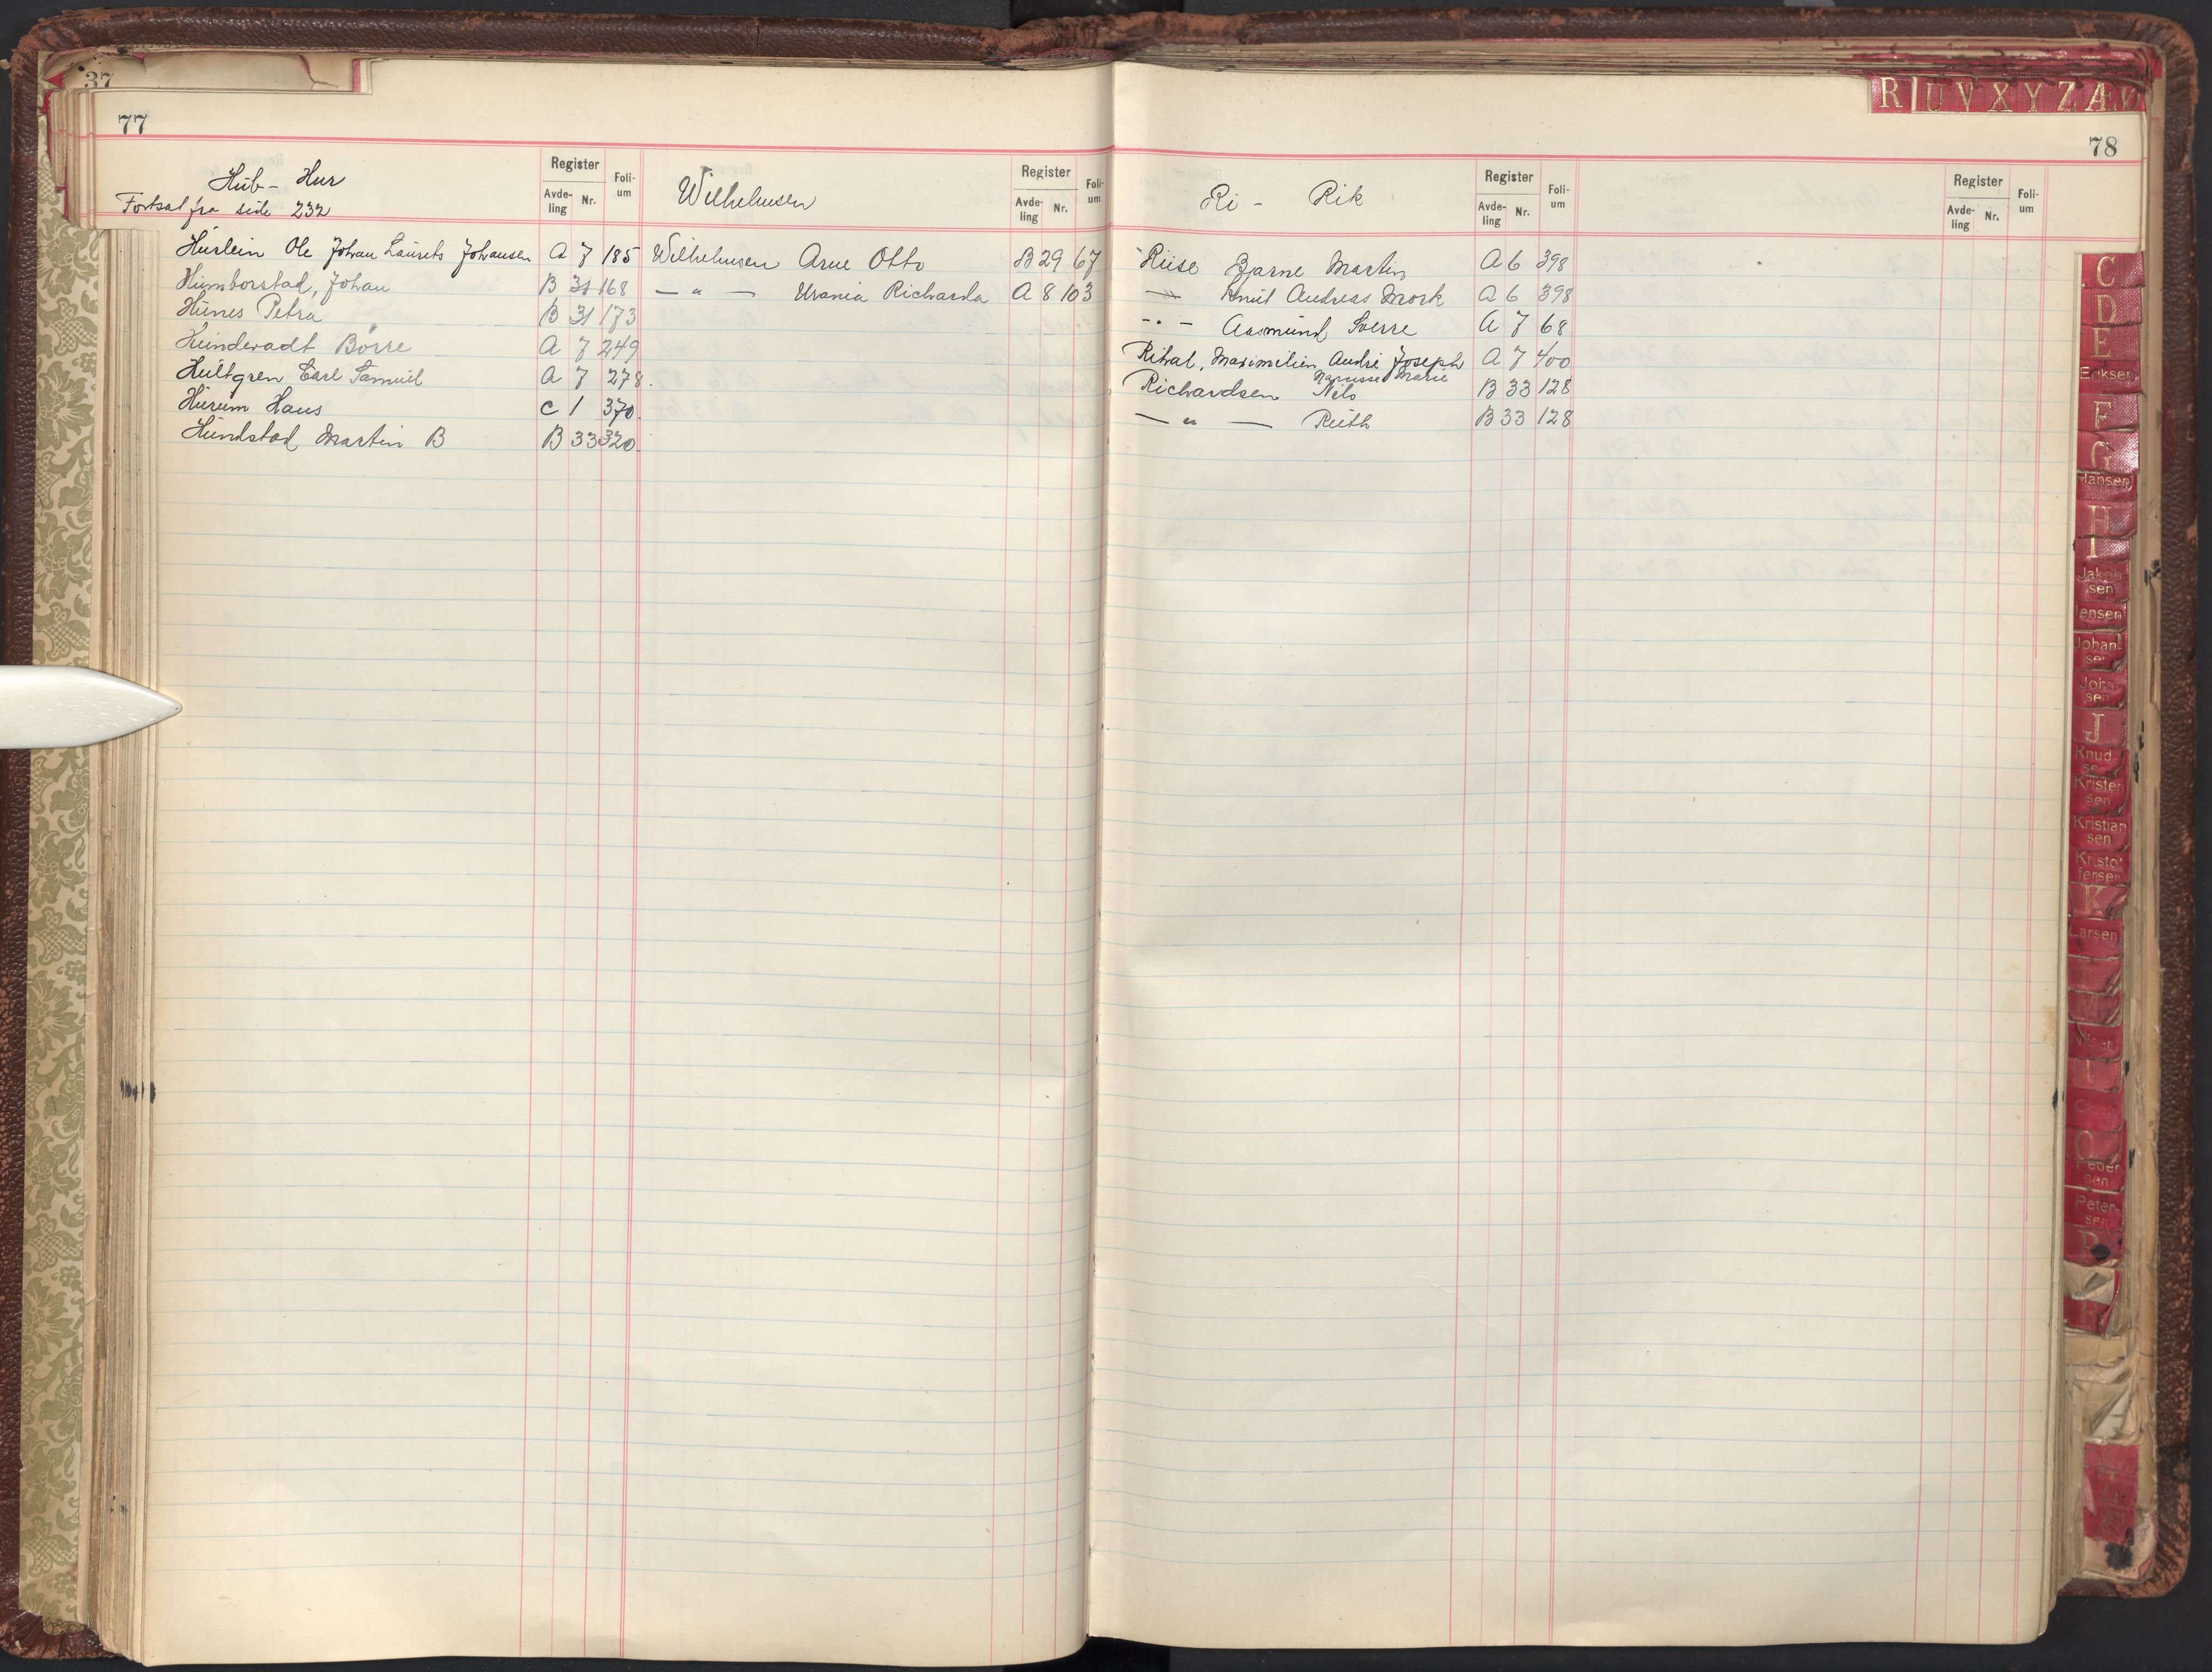 37
77
Hub - Hur
Fortsat fra side 232
Register
Avde-
ling
Nr.
Foli-
um
Hurlein Ole Johan Laurits Johansen A 7 185
Humborstad, Johan B 31 168
Hunes Petra B 31 173
Hunderadt Borre A 7 249
Hultgren Carl Samuel A 7 278.
Hurum Hans C 1 370.
Hundstad Martin B B 33 320.
Wilhelmsen
Register
Avde-
ling
Nr.
Foli-
um
Wilhelmsen Arne Otto B 29 67
— " — Urania Richarda A 8 103
78
Ri - Rik
Register
Avde-
ling
Nr.
Foli-
um
Riise Bjarne Martin A 6 398
— " — Knut Andreas Mork A 6 398
- " - Aasmund Sverre A 7 68
Rihal, Maximilien André Joseph A 7 400
Marie
Richardsen Nils B 33 128
— " — Ruth B 33 128
Register
Avde-
ling
Nr.
Foli-
um
R U V X Y Z Æ Ø
C
D
E
Eriksen
F
G
Hansen
H
I
Jakob
sen
Jensen
Johan
sen
John
sen
J
Knud
sen
Kristen
sen
Kristian
sen
Kristof
fersen
K
Larsen
O
Peder
sen
Peter-
sen
P